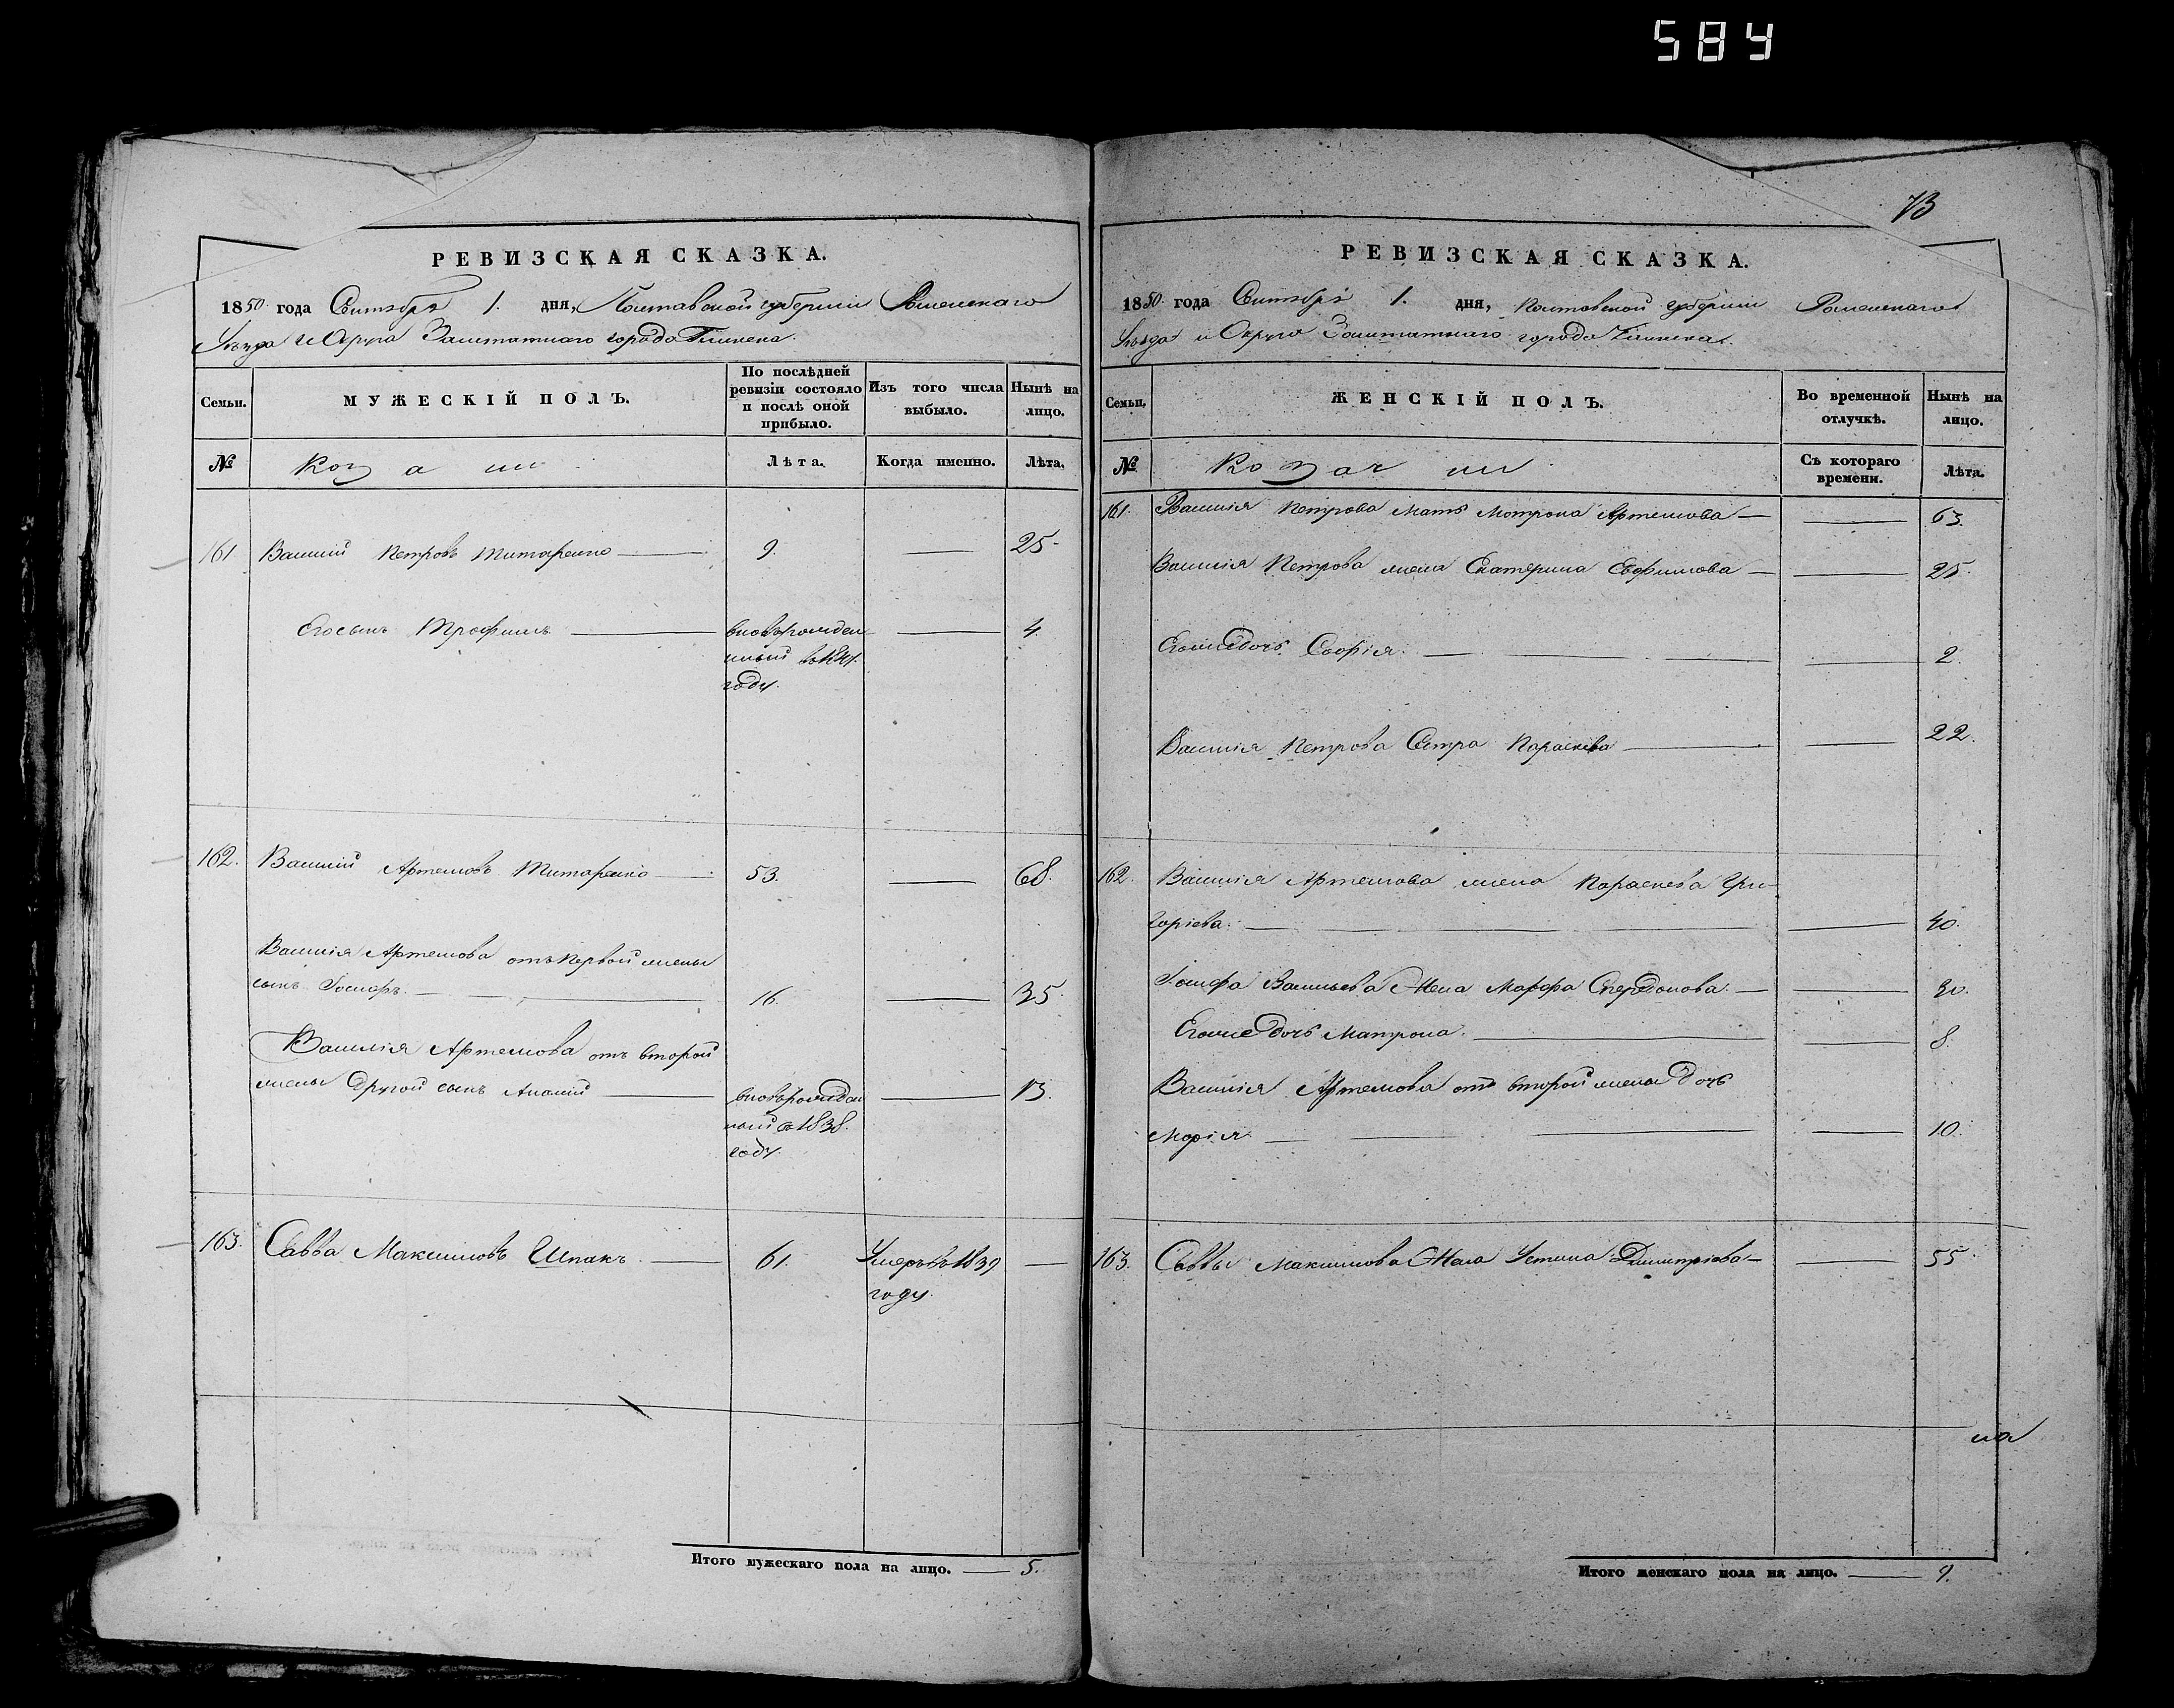 584
73
РЕВИЗСКАЯ СКАЗКА.
1850 года Сентября 1. дня, Полтавской губернии Роменскаго
Уѣзда и Округа Заштатнаго города Глинска.
Семьи.
МУЖЕСКІЙ ПОЛЪ.
По послѣдней ревизіи состояло и послѣ оной прибыло.
Изъ того числа выбыло.
Нынѣ на лицо.
№
Козаки
Лѣта.
Когда именно.
Лѣта.
161 Василий Петровъ Титаренко 9. 25.
Его сынъ Трофимъ вновьрожден 4.
ный в
году.
162. Василий Артемовъ Титаренко 53. 68.
Василія Артемова отъ первой жены
сынъ Іосифъ 16. 35.
Василія Артемова отъ второй
жены другой сынъ Ананий вновьрожден 13.
ный в 1838.
году.
163. Савва Максимовъ Шпакъ 61. Умеръ въ 1839
году.
Итого мужескаго пола на лицо. 5.
РЕВИЗСКАЯ СКАЗКА.
1850 года Сентября 1. дня, Полтавской губерніи Роменскаго
Уѣзда и Округа Заштатнаго города Глинска.
Семьи.
ЖЕНСКІЙ ПОЛЪ.
Во временной отлучкѣ.
Нынѣ на лицо.
№
Козачки
Съ котораго времени.
Лѣта.
161. Василія Петрова мать Мотрона Артемова 63.
Василія Петрова жена Екатерина Евфимова 25.
Егоже дочь Софія 2.
Василія Петрова Сестра Параскева 22.
162. Василія Артемова жена Параскева Гри
горіева 40.
Іосифа Васильева Жена Марфа Спиридонова 30.
Егоже дочь Матрона. 8.
Василія Артемова отъ второй жены дочь
Марія 10.
163. Саввы Максимова Жена Устина Димитріева 55
на
Итого женскаго пола на лицо. 9.